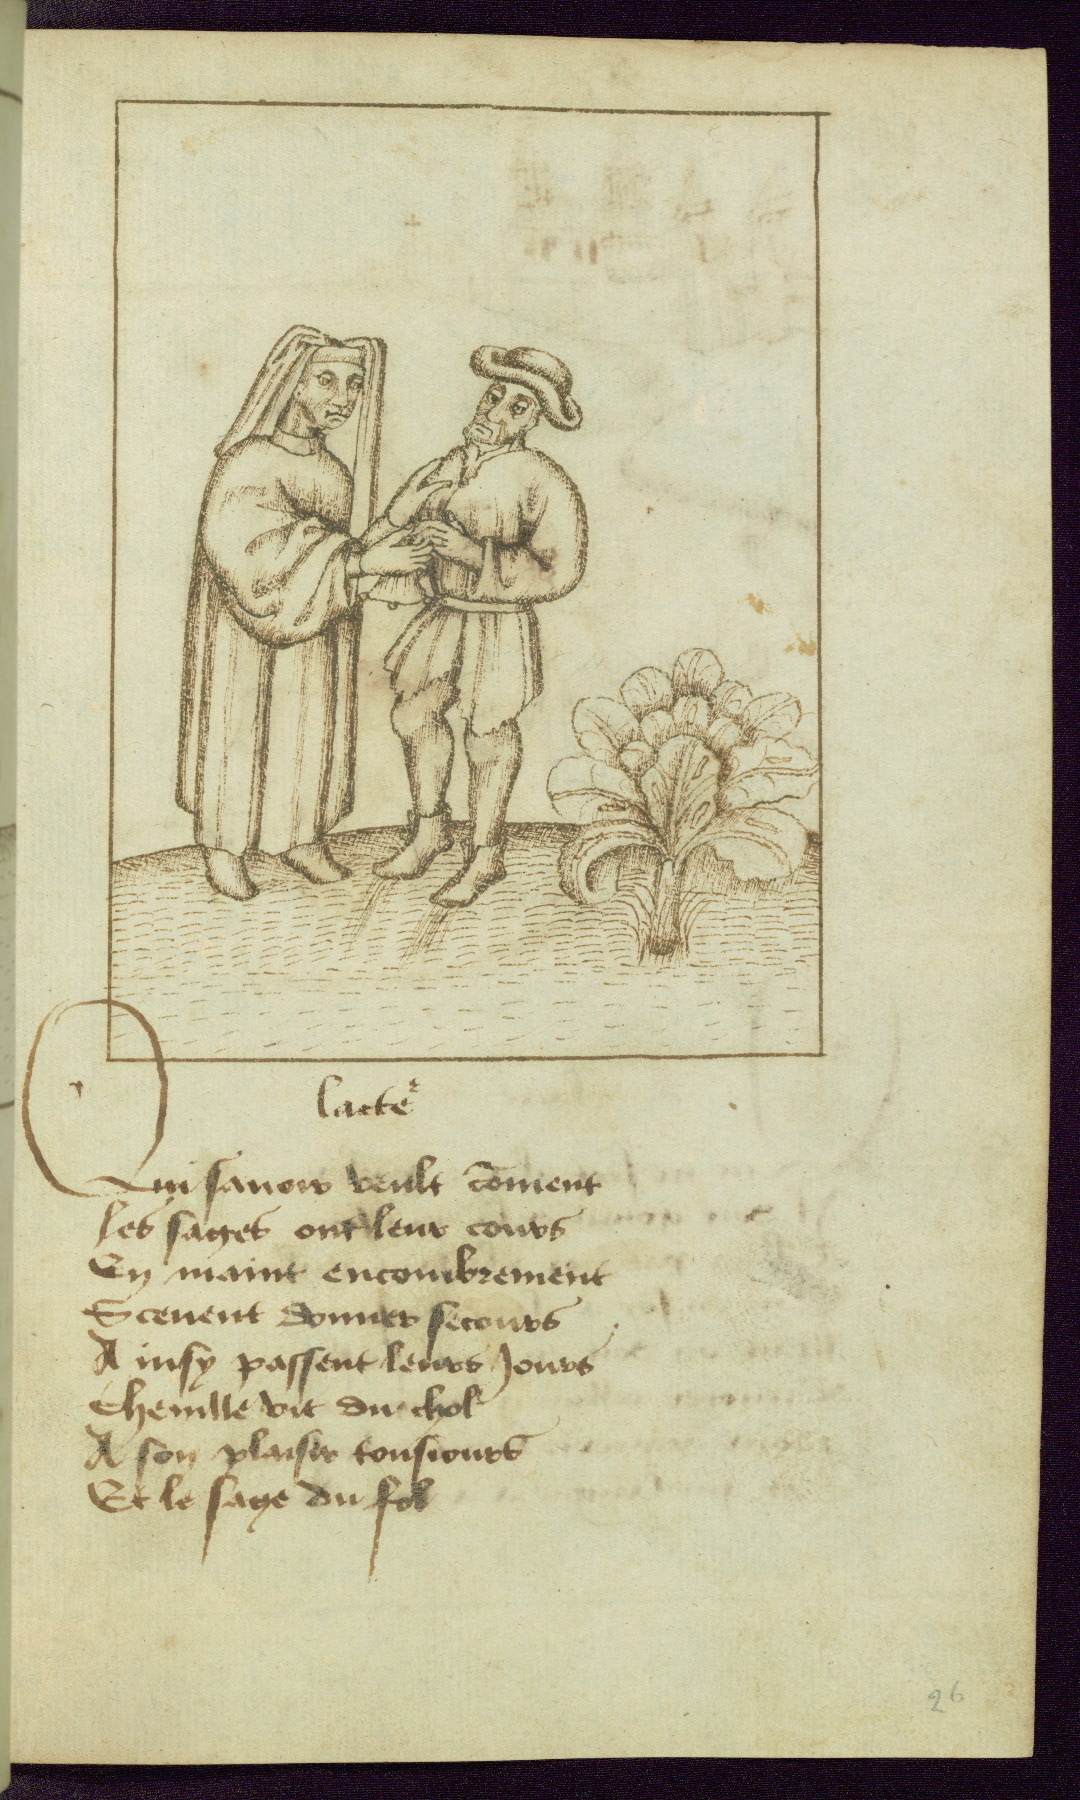 lacteᷣ
Qui sauoir veult cōment
Les sages ont leur cours
En maint encombrement
Sceuent donner secours
Ainsy passent leurs Jours
Chenille vit du chol
A son plaisir tousiours
Et le sage du fol
26